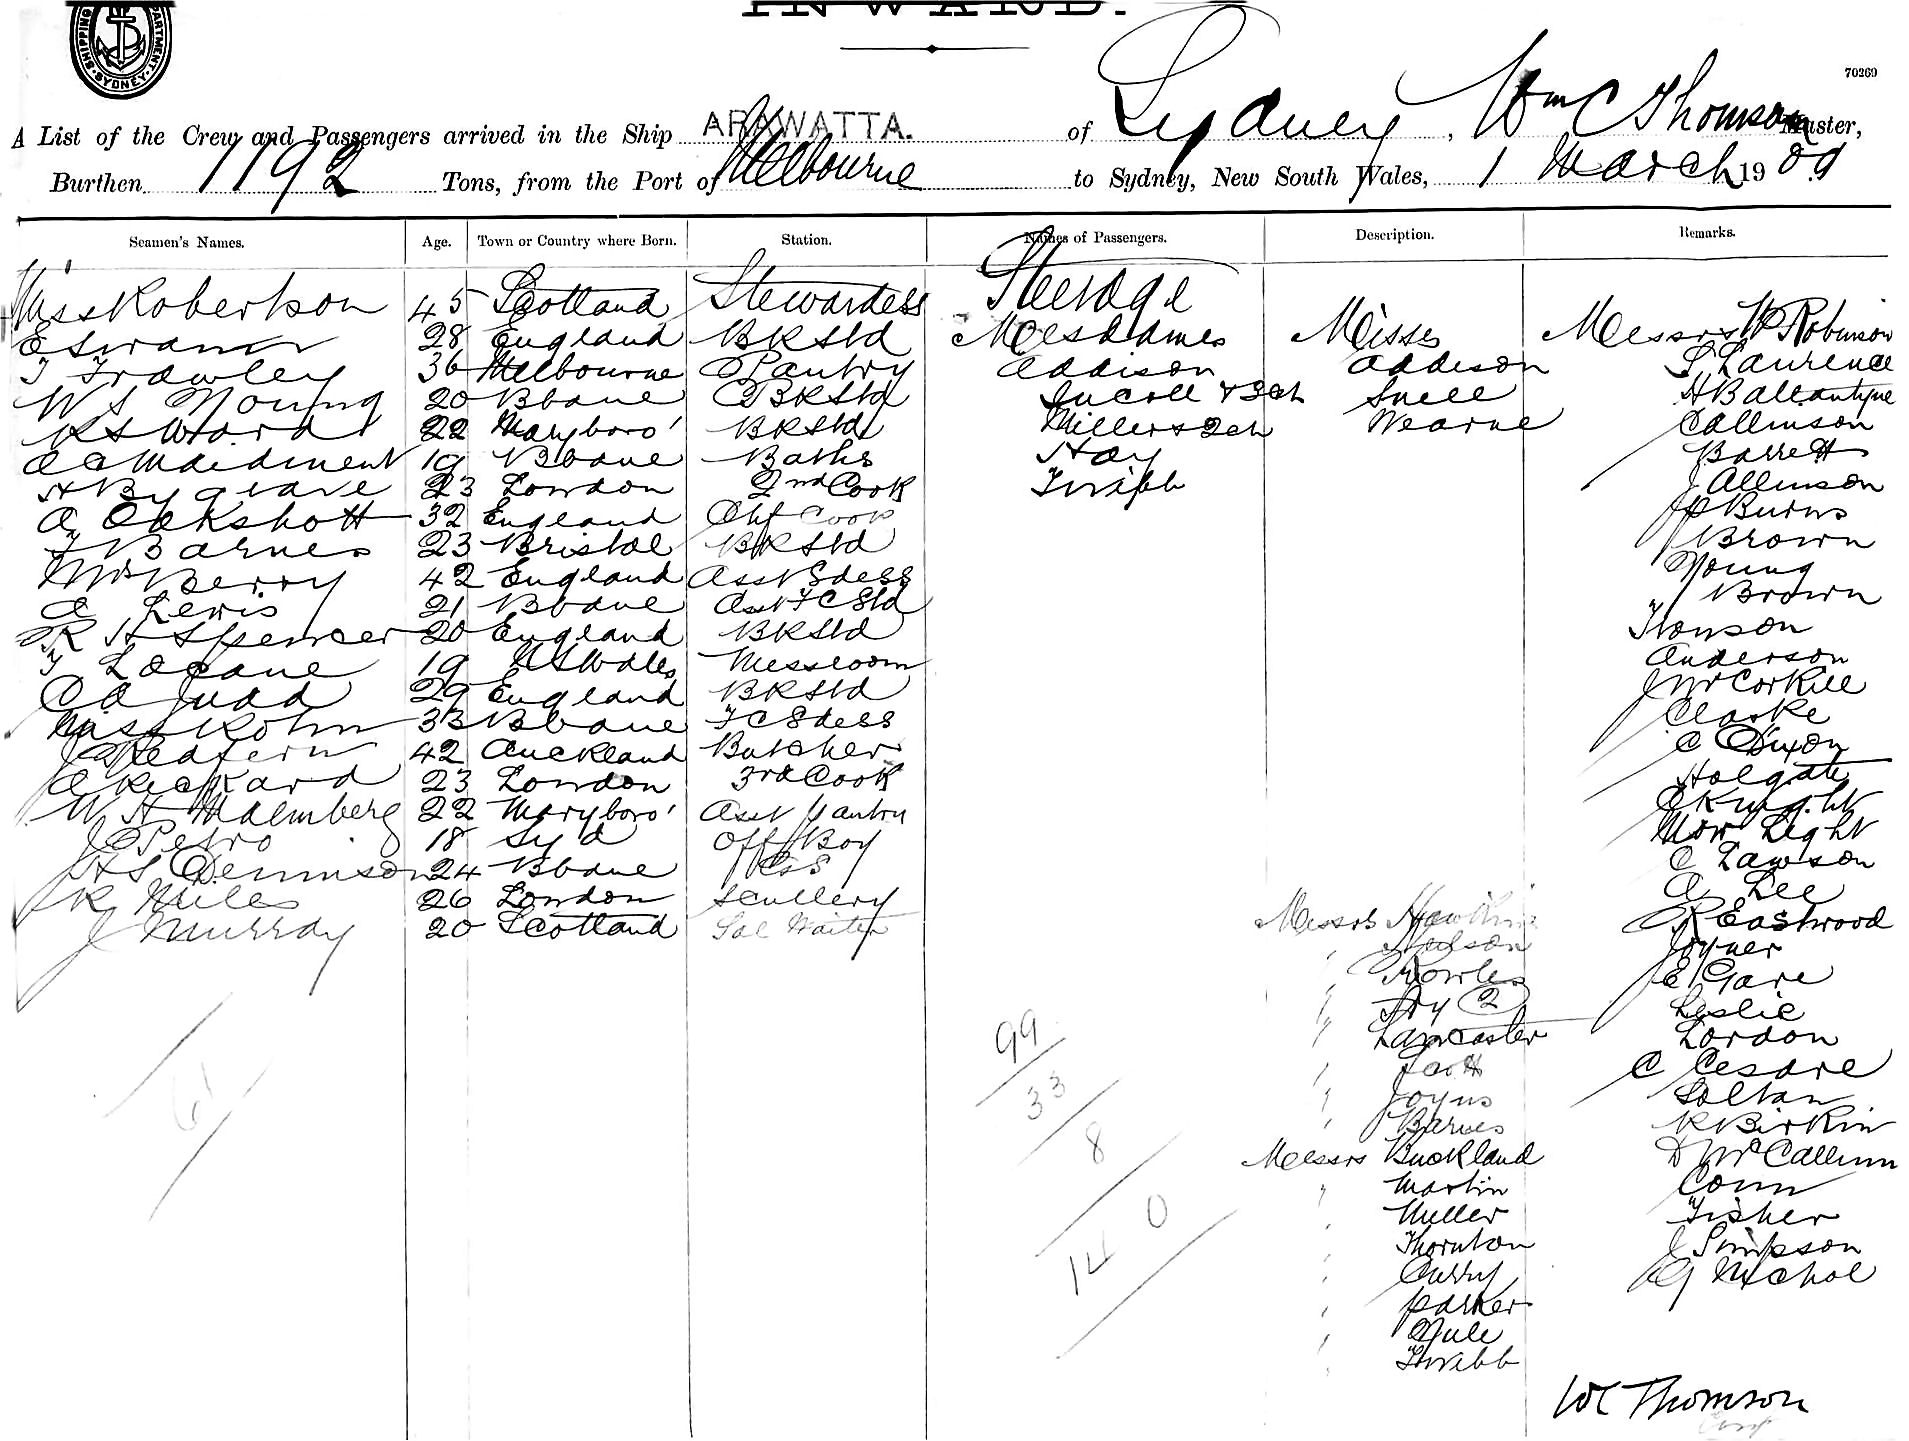 INWARD.
SHIPPING DEPARTMENT SYDNEY
70269
A List of the Crew and Passengers arrived in the Ship ARAWATTA. of Sydney, Wm C Thomson Master,
Burthen 1192 Tons, from the Port of Melbourne to Sydney, New South Wales, 1 March 1909
Seamen's Names. Age. Town or Country where Born. Station. Names of Passengers. Description. Remarks.
Steerage
Miss Robertson 45 Scotland Stewardess
E Swann 28 England BKStd Mesdames Misses Messrs W Robinson
T Frawley 36 Melbourne Pantry Addison Addison S Laurence
W S Young 20 Bbane BKStd & 3ch Snell H Ballantyne
K S Ward 22 Maryboro' BKStd Miller & 2ch Wearne Callinson
A C Maidment 19 Bbane Baths Hay Barrett
H Bygrave 23 London 2nd Cook Twibb J Allinson
A Oakshott 32 England Chf Cook Burns
F Barnes 23 Bristol BKStd Brown
Mrs Berry 42 England Asst Sdess Young
A Lewis 21 Bbane Asst FCStd Brown
R H Spencer 20 England BKStd Ionson
T Logane 19 NSWales Messroom Anderson
C A Judd 29 England BKStd J McCorkill
Miss Rohn 33 Bbane FCSdess Clarke
J Redfern 42 Auckland Butcher C Dixon
A Rickard 23 London 3rd Cook Holgate
W H Malmberg 22 Maryboro' Asst Pantry Knight
J Petro 18 Syd Off Boy Mor Light
H S Dennison 24 Bbane RSS C Lawson
R Miles 26 London Scullery A Lee
J Murray 20 Scotland Sal Waiter Messrs Hawkins R Eastwood
" Nelson Joyner
" Knowles E Gare
" Fry (2) Leslie
" Lancaster Lordon
99 " Scott C Cesare
33 " Joyns Soltan
" Barnes R Birkin
8 Messrs Buckland D McCallum
" Martin Conn
140 " Muller Fisher
" Thornton J Simpson
" Curry G Nichol
" Parker
" Yule
" Twibb
61
WC Thomson